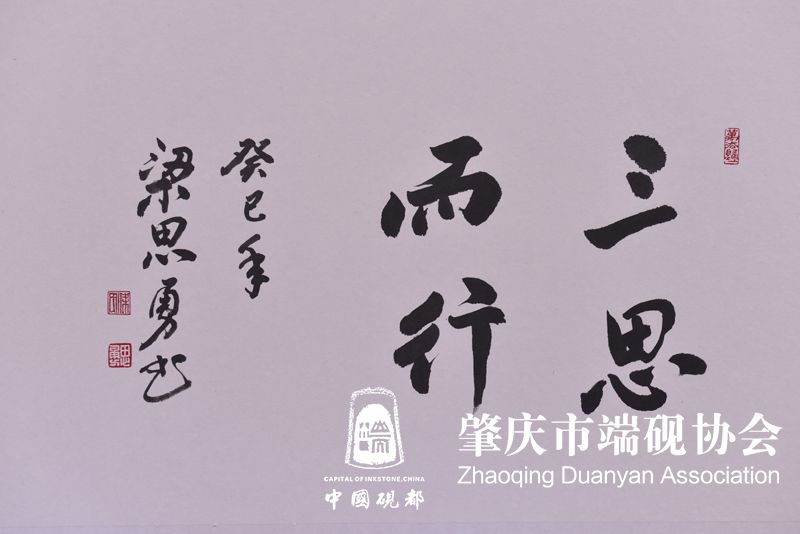 三思
而行
癸巳年
梁思勇书
肇庆市端砚协会
Zhaoqing Duanyan Association
CAPITAL OF INKSTONE,CHINA
中國硯都